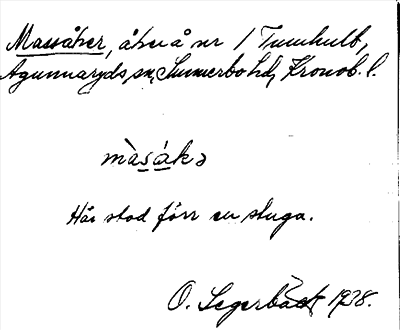 Massåker, åker å nr 1 Tunhult,
Agunnaryds sn, Sunnerbo hd, Kronob. l.
màsákə
Här stod förr en stuga.
O. Segerbäck 1928.